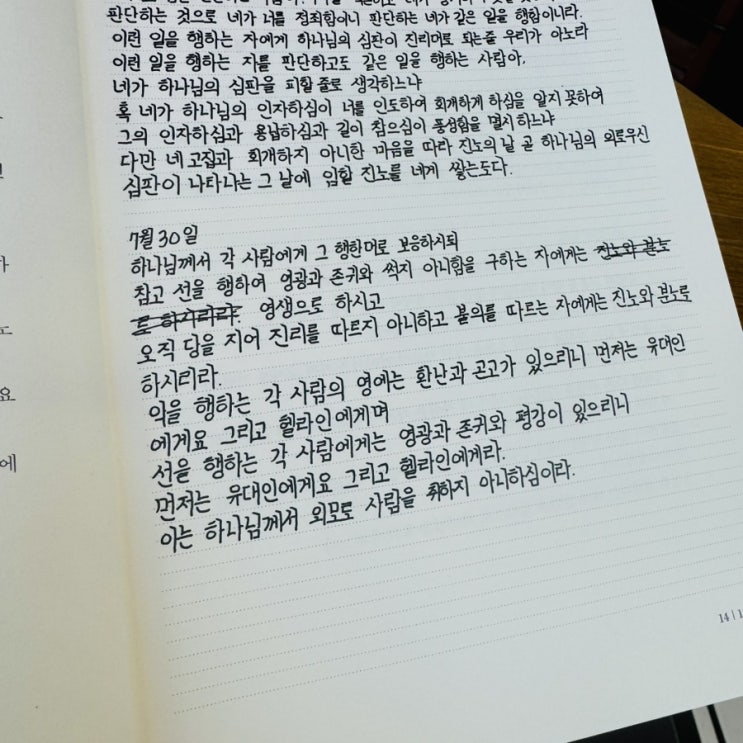 판단하는 것으로 네가 너를 정죄함이니 판단하는 네가 같은 일을 행함이니라.
이런 일을 행하는 자에게 하나님의 심판이 진리대로 되는줄 우리가 아노라
이런 일을 행하는 자를 판단하고도 같은 일을 행하는 사람아,
네가 하나님의 심판을 피할 줄로 생각하느냐
혹 네가 하나님의 인자하심이 너를 인도하여 회개하게 하심을 알지 못하여
그의 인자하심과 용납하심과 길이 참으심이 풍성함을 멸시하느냐
다만 네 고집과 회개하지 아니한 마음을 따라 진노의 날 곧 하나님의 의로우신
심판이 나타나는 그 날에 임할 진노를 네게 쌓는도다.
7월 30일
하나님께서 각 사람에게 그 행한대로 보응하시되
참고 선을 행하여 영광과 존귀와 썩지 아니함을 구하는 자에게는 진노와 분노
로 하시리라. 영생으로 하시고
오직 당을 지어 진리를 따르지 아니하고 불의를 따르는 자에게는 진노와 분노로
하시리라.
악을 행하는 각 사람의 영에는 환난과 곤고가 있으리니 먼저는 유대인
에게요 그리고 헬라인에게며
선을 행하는 각 사람에게는 영광과 존귀와 평강이 있으리니
먼저는 유대인에게요 그리고 헬라인에게라.
이는 하나님께서 외모로 사람을 취하지 아니하심이라.
요
에